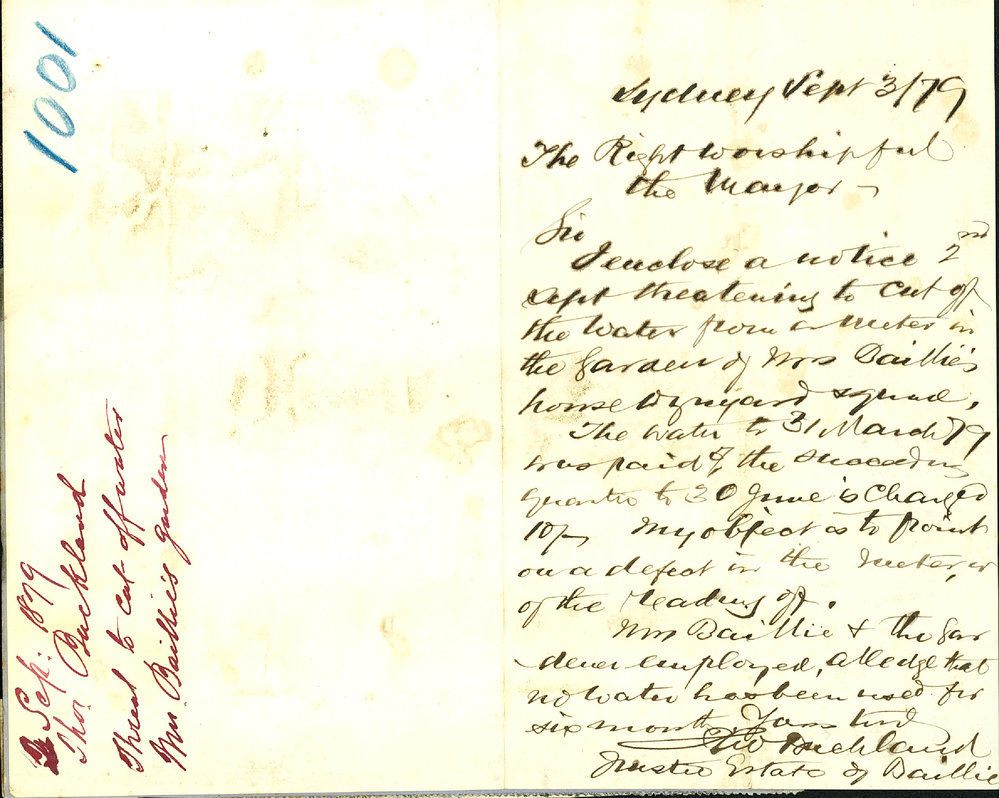 1001
3 Sep: 1879
Thos Buckland
Threat to cut off water
Mrs Baillie's garden
Sydney Sept 3/79
The Right worshipful
the Mayor
Sir
I enclose a notice 2nd
Sept threatening to cut of
the water from a meter in
the Garden of Mrs Baillie's
house Wynyard square,
The water to 31 March 79
was paid & the succeeding
quarter to 30 June is charged
10/- My object is to point
ou a defect in the meter, or
of the reading of.
Mrs Baillie & the Gar
dener employed, alledge that
no water has been used for
six months Yours truly
Tho Buckland
Trustee Estate of Baillie